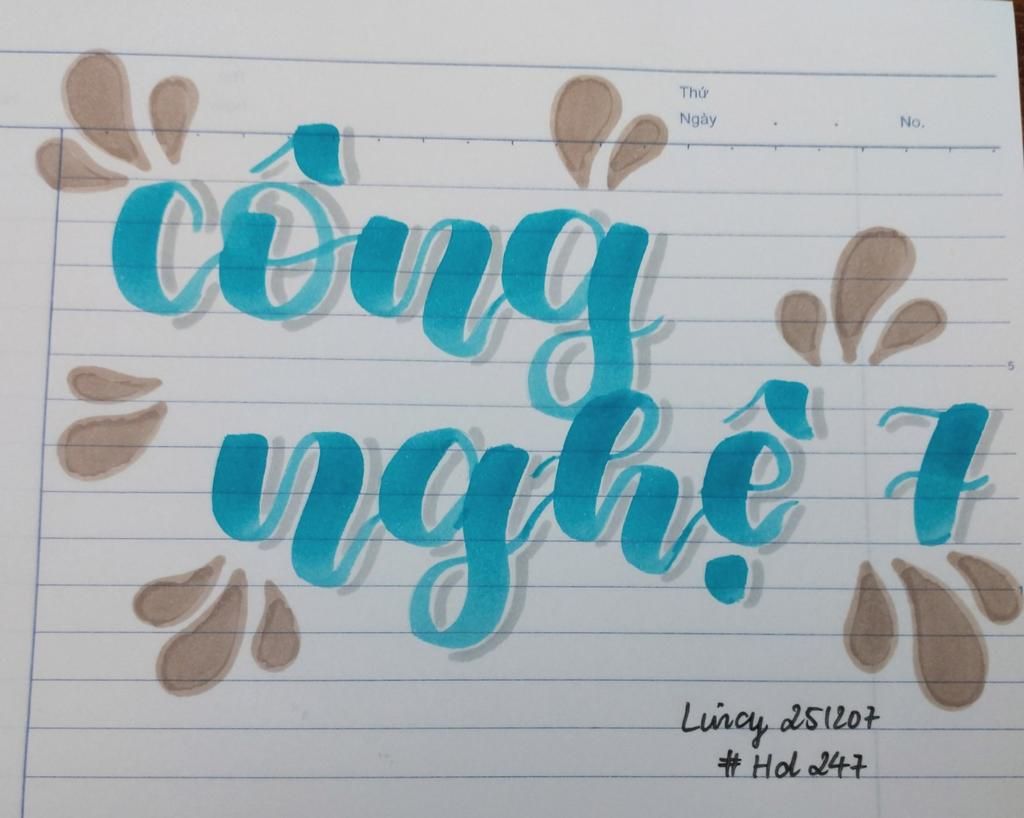 Thứ
Ngày . . No.
công
5
nghệ 7
Luincy 251207
# Hod 247